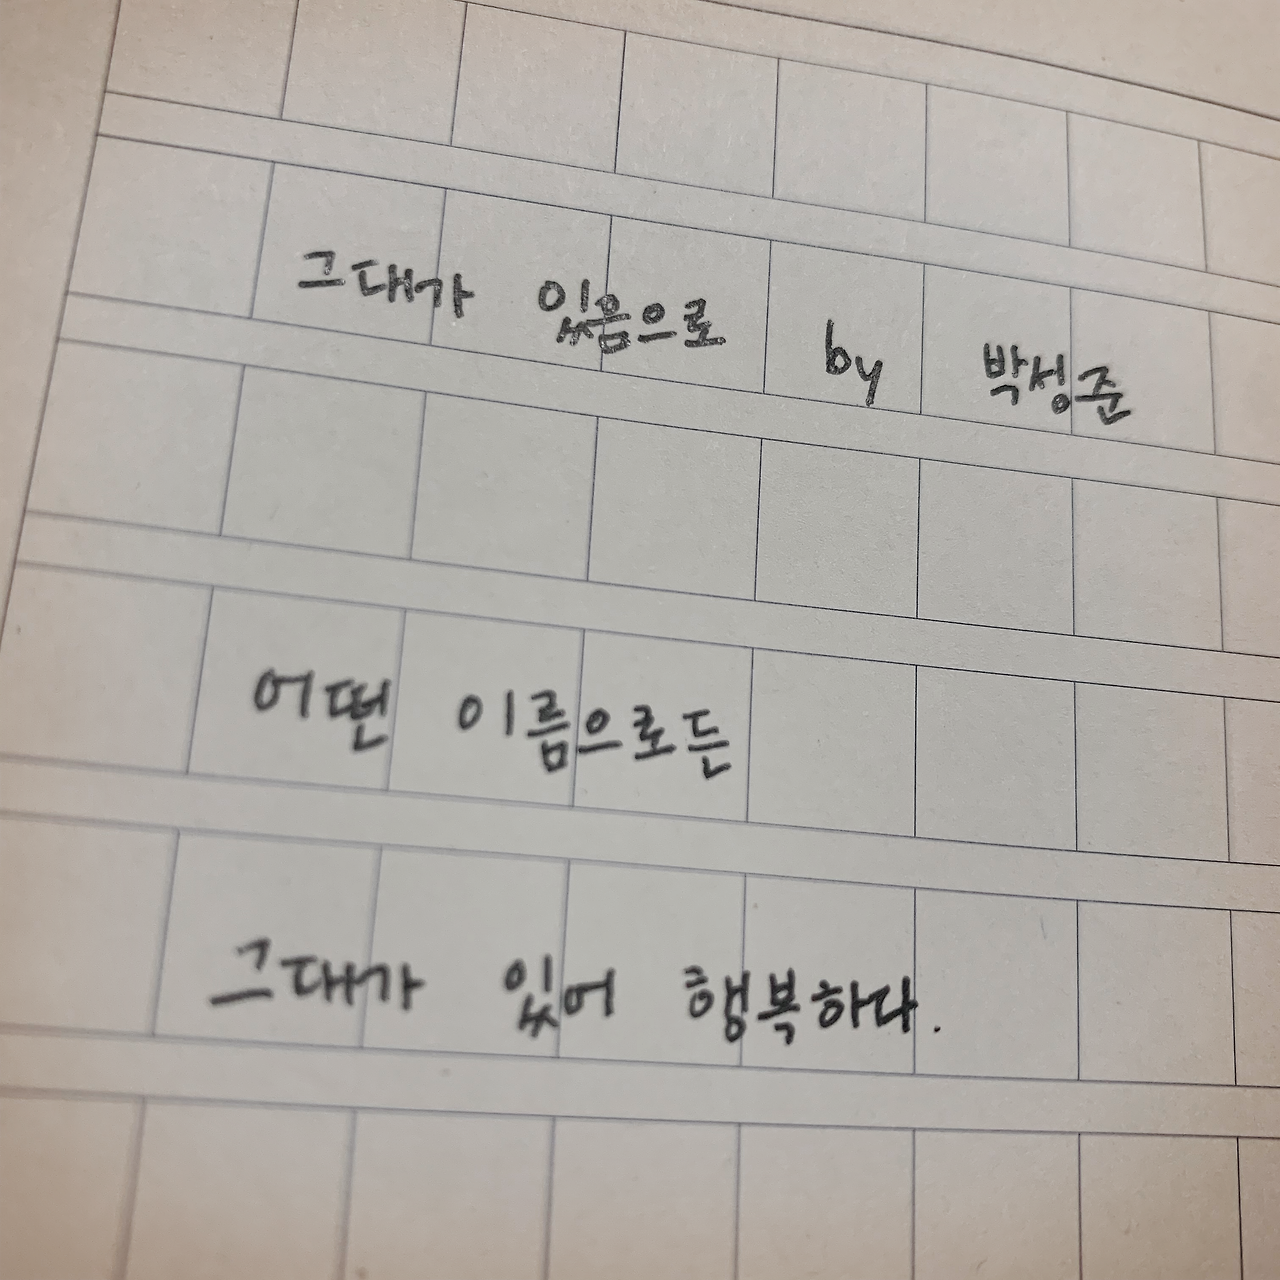 그대가 있음으로 by 박성준
어떤 이름으로든
그대가 있어 행복하다.